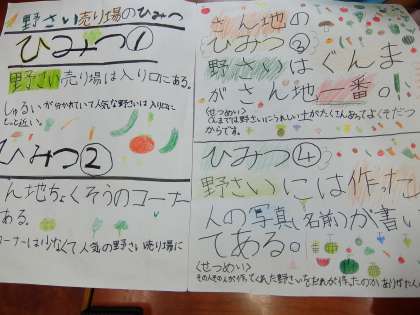 野さい売り場のひみつ
ひみつ①
野さい売り場は入り口にある。
しゅるいが分かれていて人気な野さいは入り口に
ひみつ②
ん地ちょくそうのコーナー
ある。
コーナーは少なくて人気の野さい売り場に
さん地の
ひみつ③
野さいはぐんま
がさん地一番。
〈せつめい〉
ぐんまでは野さいにうれしい土がたくさんあってよくそだつ
からです。
ひみつ④
野さいには作った
人の写真(名前)が書い
てある。
〈せつめい〉
その人が作ってくれた野さいをだれが作ったのか